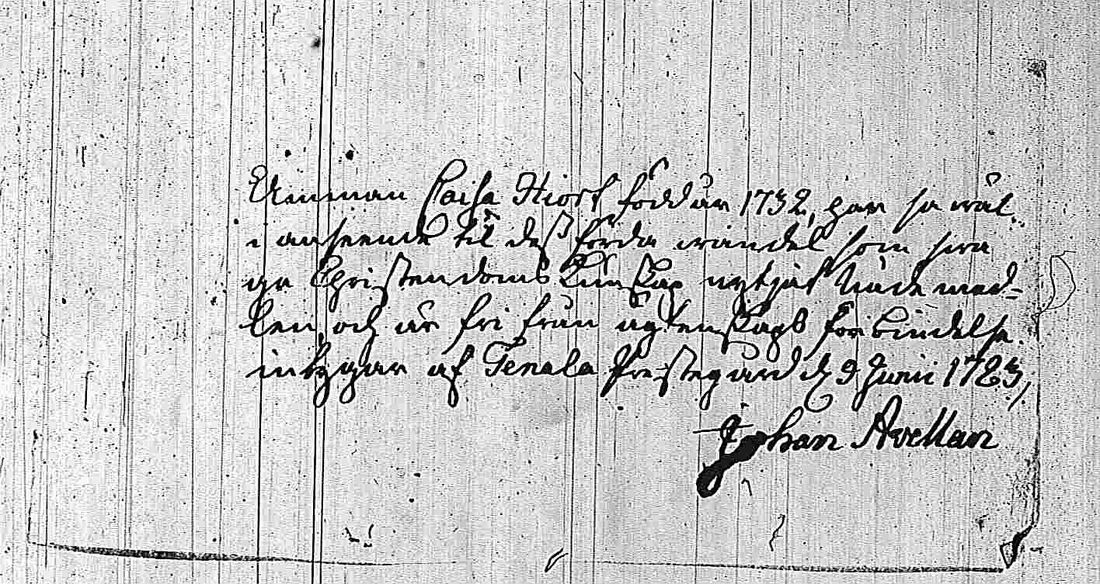 Amman Caisa Hiort född år 1732, har så wäl
i anseende til dess förda wandel som swa
ga Christendoms kunskap nytjat Nåde med-
len, och är fri från ägtenskaps förbindelse.
intygar af Tenala Prestegård d. 9 Junii 1783,
Johan Avellan